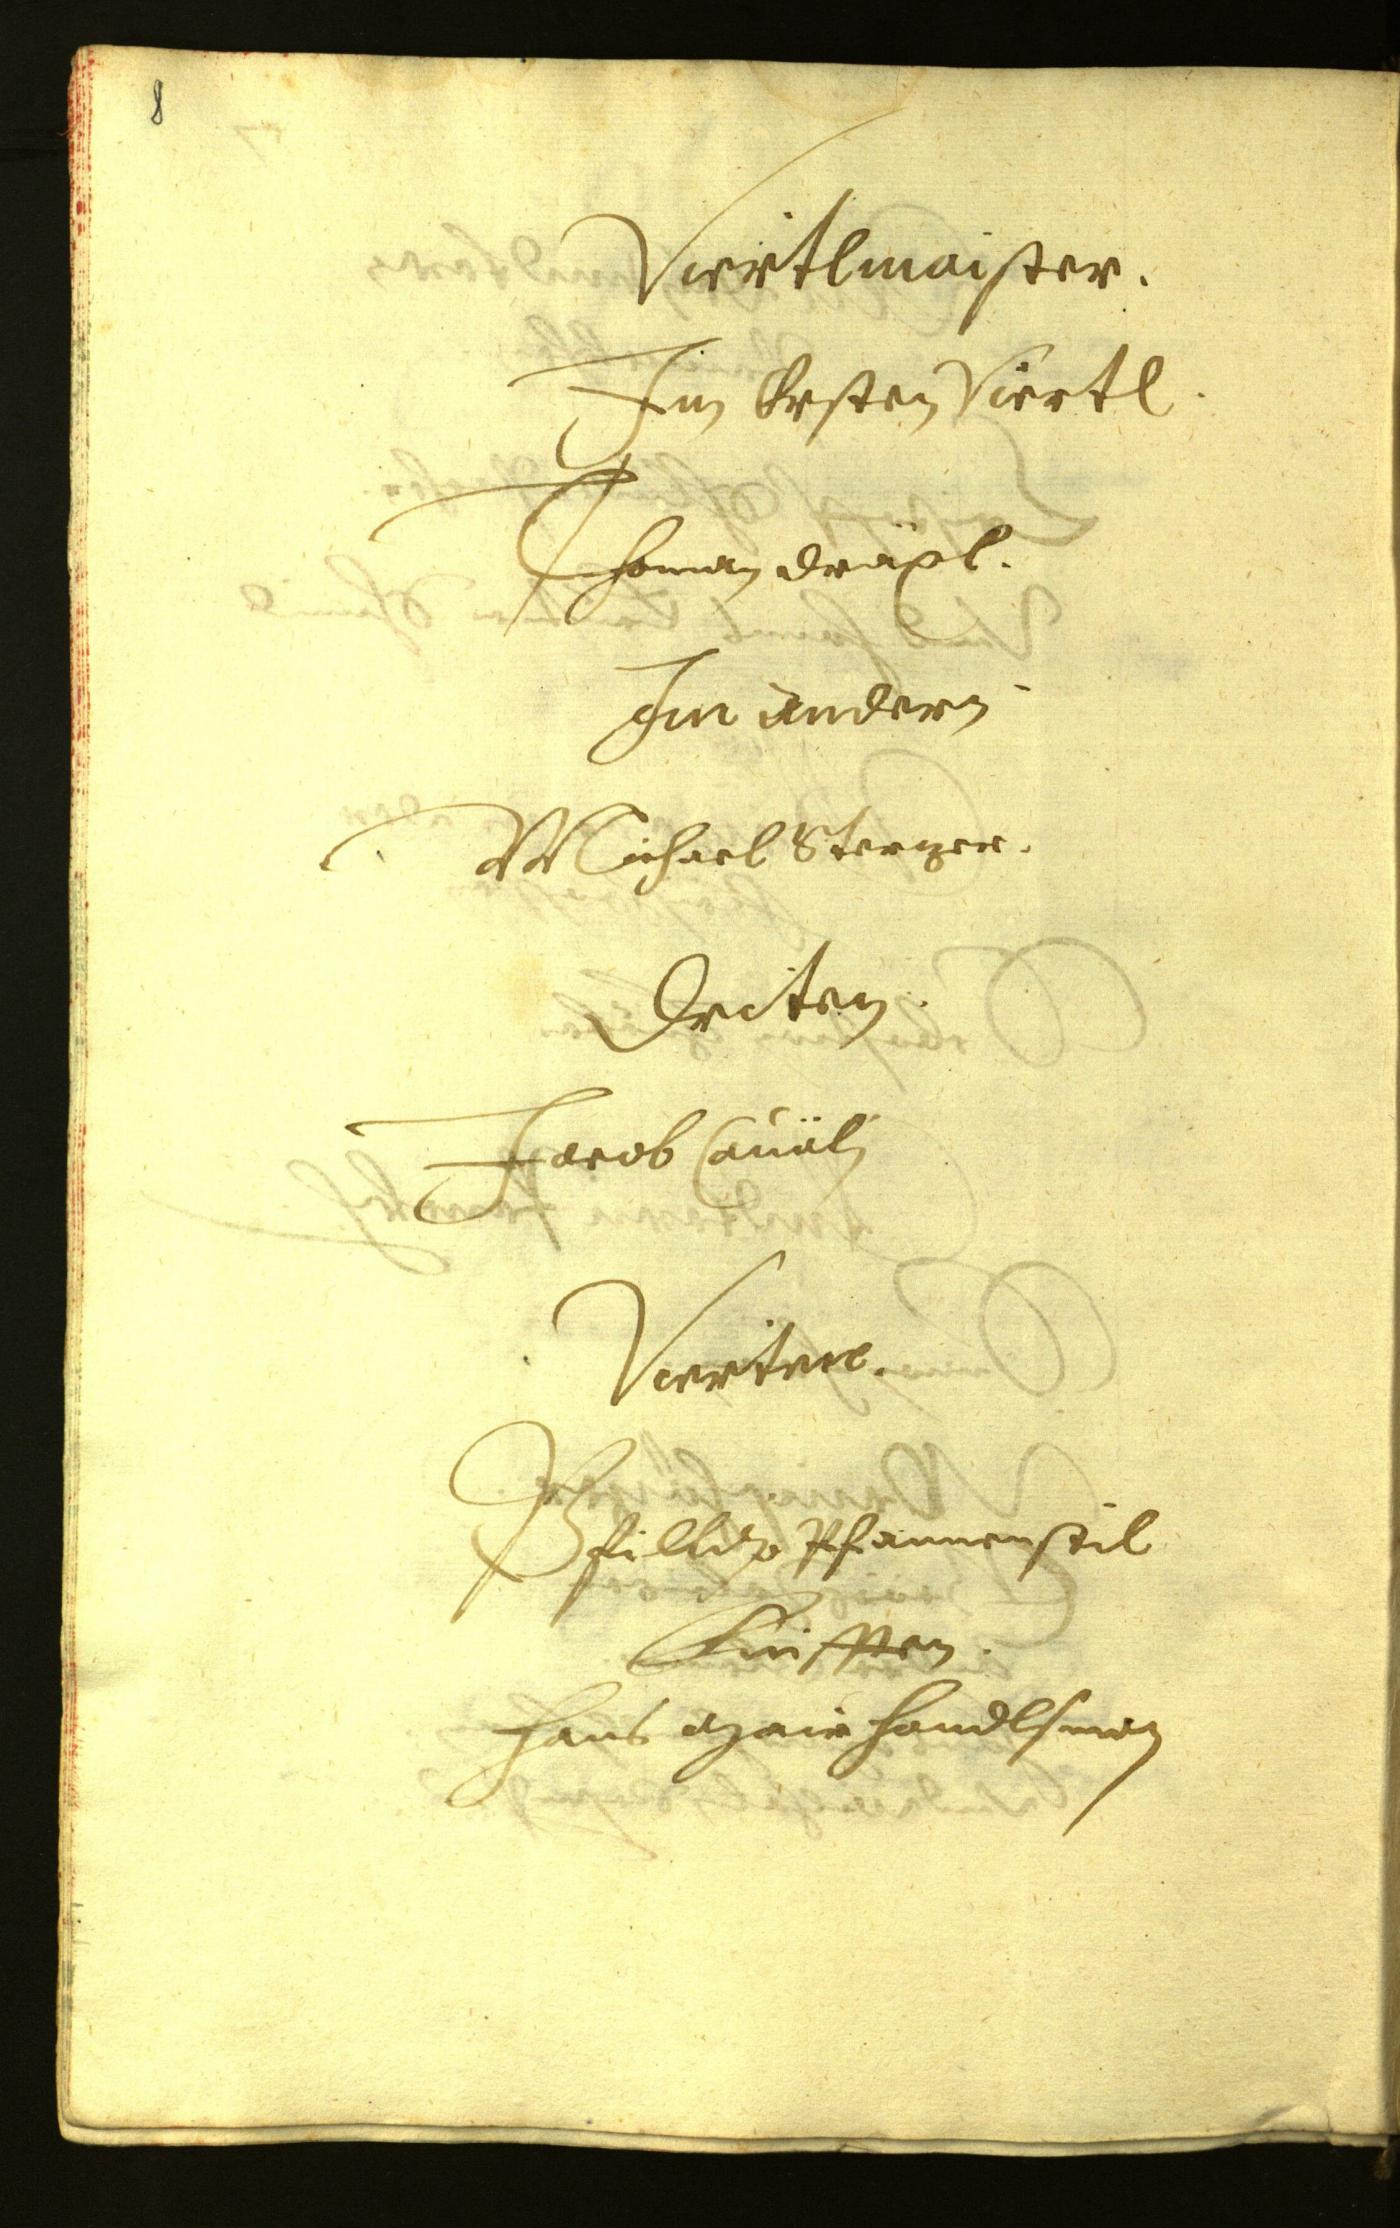 8
Viertlmaister.
Im Ersten Viertl.
Thoman Dräxl.
Im andern
Michael Sterzer.
Driten.
Jacob
Vierten.
Philipp Pfannenstil
Fünfften.
Hans Mair Handlsman